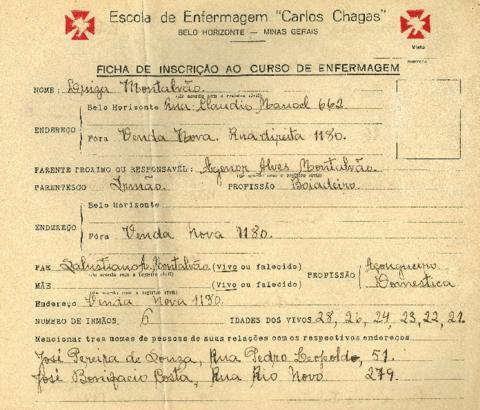 Escola de Enfermagem "Carlos Chagas"
BELO HORIZONTE — MINAS GERAIS
Visto
FICHA DE INSCRIÇÃO AO CURSO DE ENFERMAGEM
NOME: Luiza Montalvão
(de acordo com o registro civil)
Belo Horizonte Rua: Claudio Manoel 662
ENDEREÇO
Fóra Venda Nova. Rua direita 1180.
PARENTE PROXIMO OU RESPONSAVÉL: Agenor Alves Montalvão.
PARENTESCO Irmão. PROFISSÃO Boiadeiro
Belo Horizonte
ENDEREÇO
Fóra Venda Nova 1180.
PAE Salustiano Montalvão (Vivo ou falecido) PROFISSÃO Açougueiro
(de acordo com o registro civil)
MÃE (Vivo ou falecido) Domestica
(de acordo com o registro civil)
Endereço Venda Nova 1180.
NUMERO DE IRMÃOS 6 IDADES DOS VIVOS 28, 26, 24, 23, 22, 21.
Mencionar tres nomes de pessoas de suas relações com os respectivos endereços
José Pereira de Souza, Rua Pedro Leopoldo, 51.
José Bonifacio Costa, Rua Rio Novo 279.